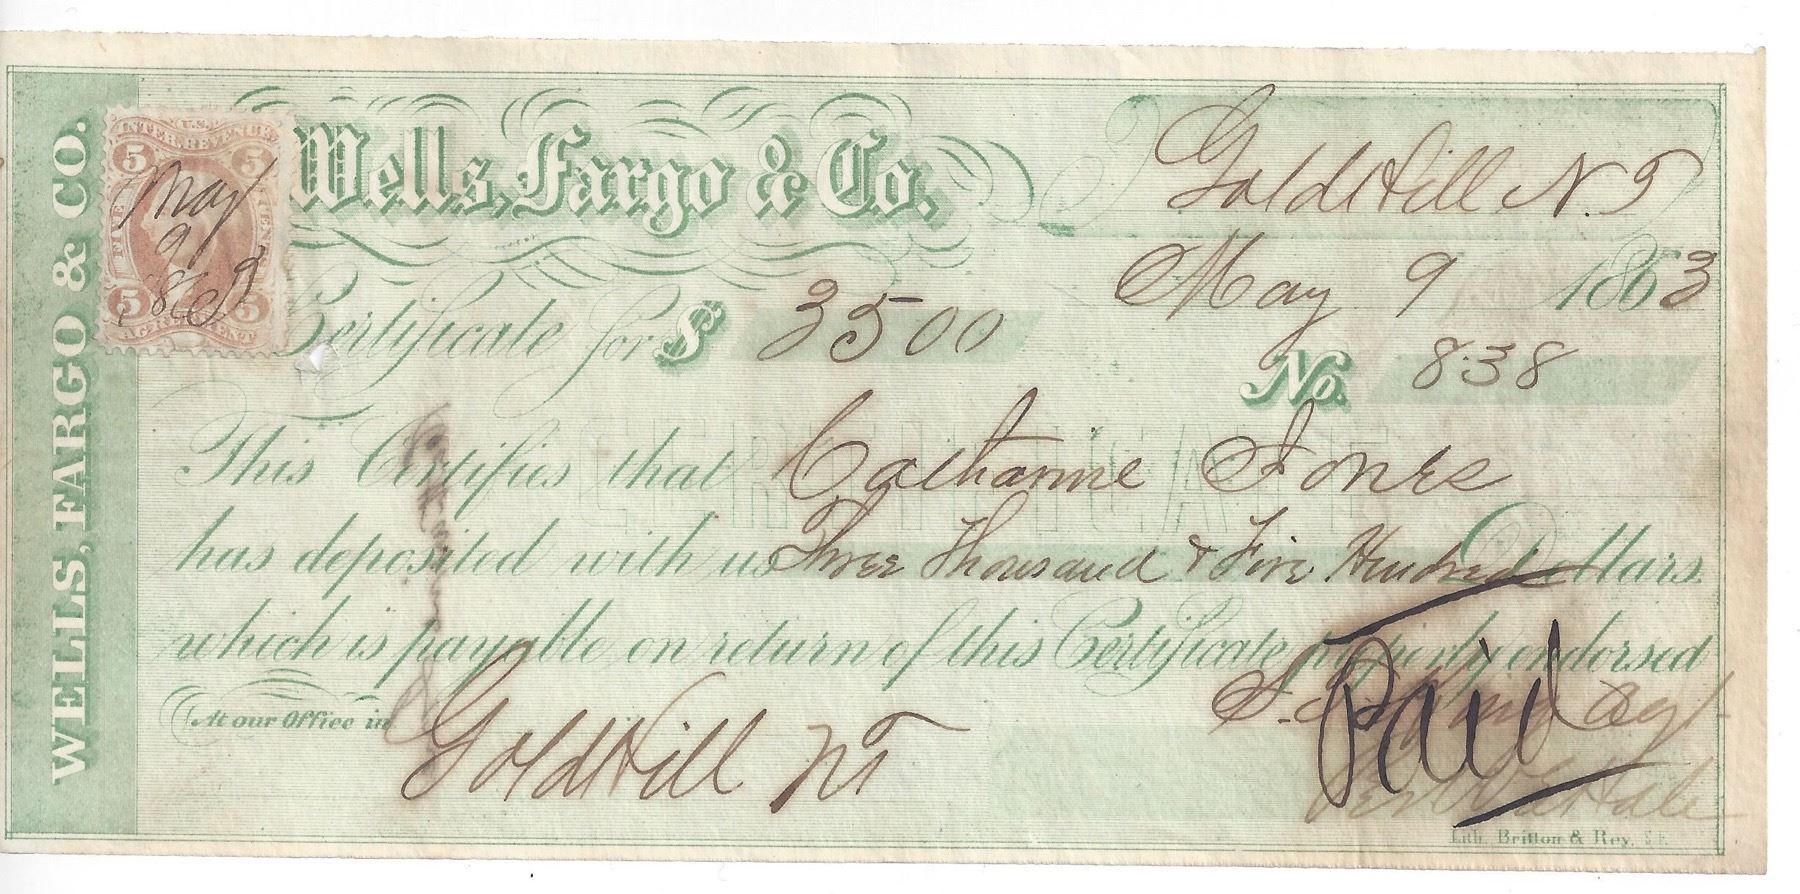 WELLS, FARGO & CO.
U.S.
INTER. REVENUE
5 5
FIVE CENTS
5 5
AGREEMENT
May
9
1863
Wells, Fargo & Co.
Gold Hill N.T
May 9 1863
Certificate for $ 3500
No. 838
CERTIFICATE
This Certifies that Catharine Jones
has deposited with us Three Thousand & Five Hundred Dollars.
which is payable on return of this Certificate properly endorsed
At our Office in Gold Hill NT
Paid
Agt
Lith. Britton & Rey, S.F.